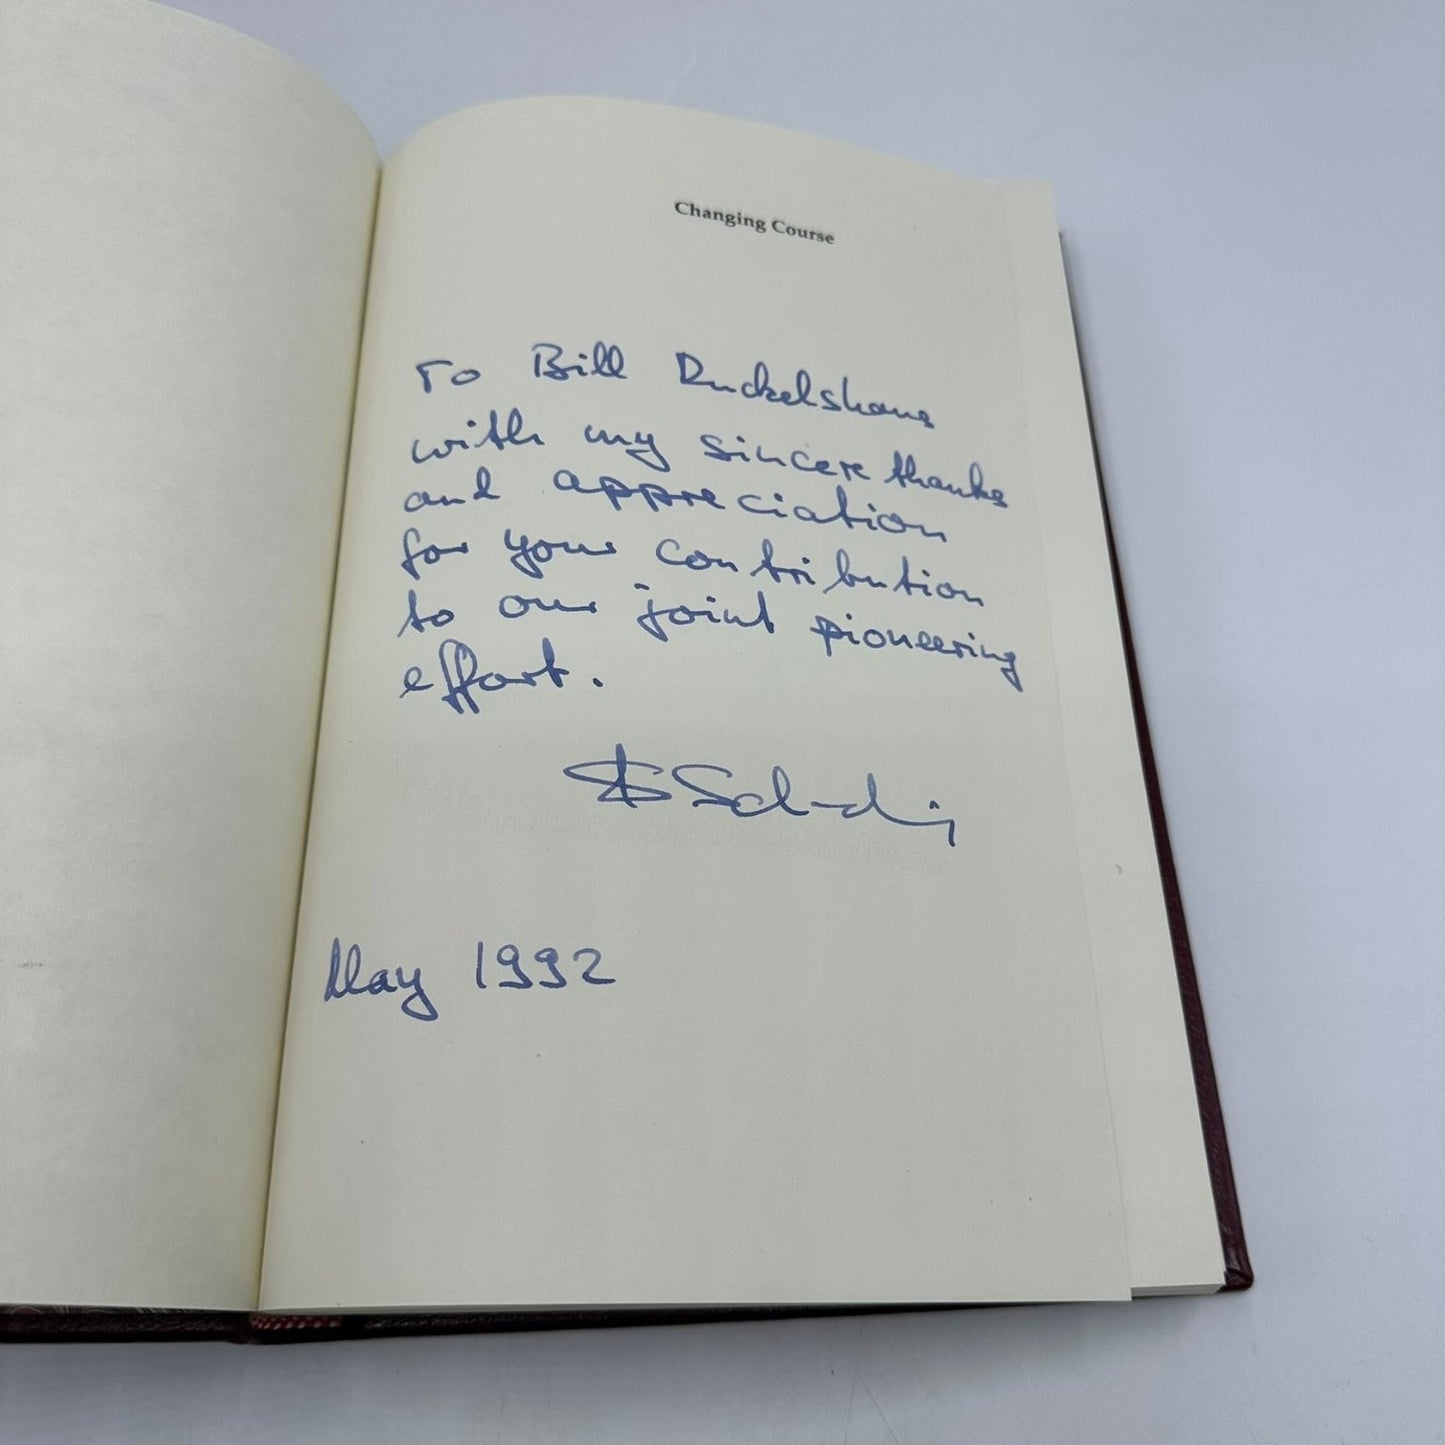 Changing Course
To Bill Ruckelshaus
with my sincere thanks
and appreciation
for your contribution
to our joint pioneering
effort.
May 1992